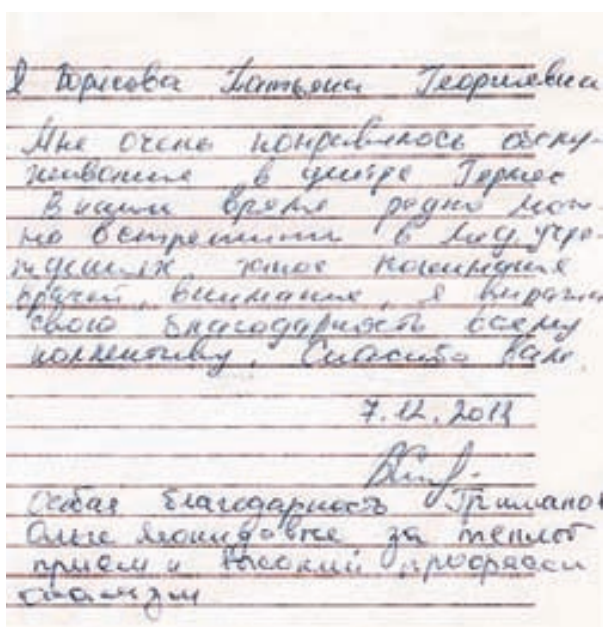 Я Борисова Татьяна Георгиевна
Мне очень понравилось обслу-
живание в центре Гермес
В наши время редко мож-
но встретить в мед. учре-
ждениях такое
врачей, внимание, я выражаю
свою благодарность всему
коллективу. Спасибо Вам.
7.12.2011
Особая благодарность
Ольге Леонидовне за теплот
прием и высокий професси
онализм